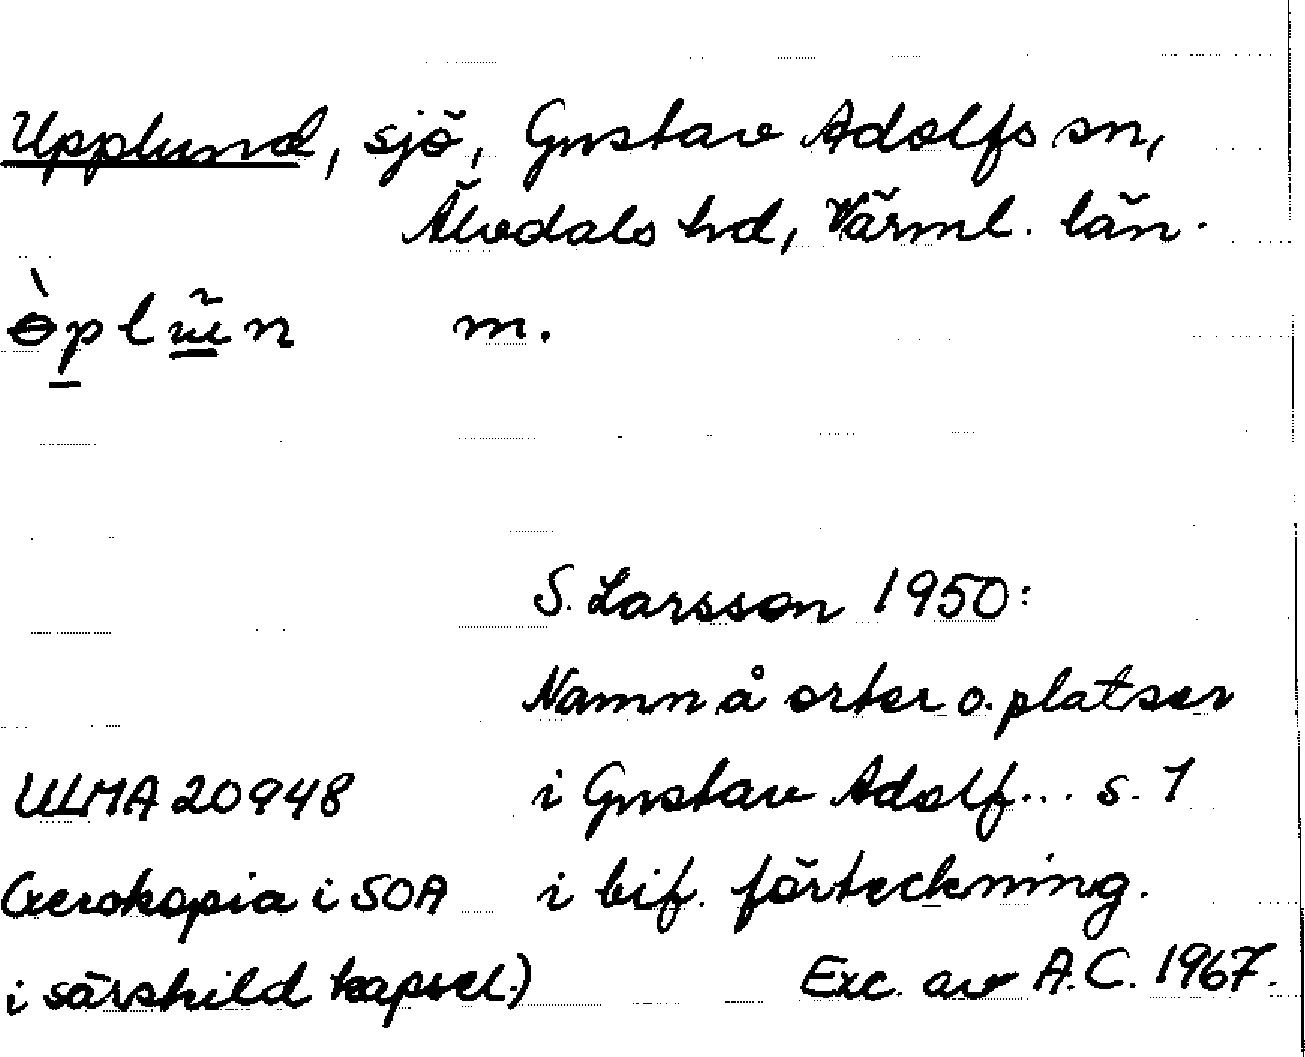 Upplund, sjö, Gustav Adolfs sn,
Älvdals hd, Värml. län.
m.
S. Larsson 1950:
Namn å orter o. platser
ULMA 20948 i Gustav Adolf... s. 1
(Xerokopia i SOA i bif. förteckning.
i särskild kapsel.) Exc. av A.C. 1967.